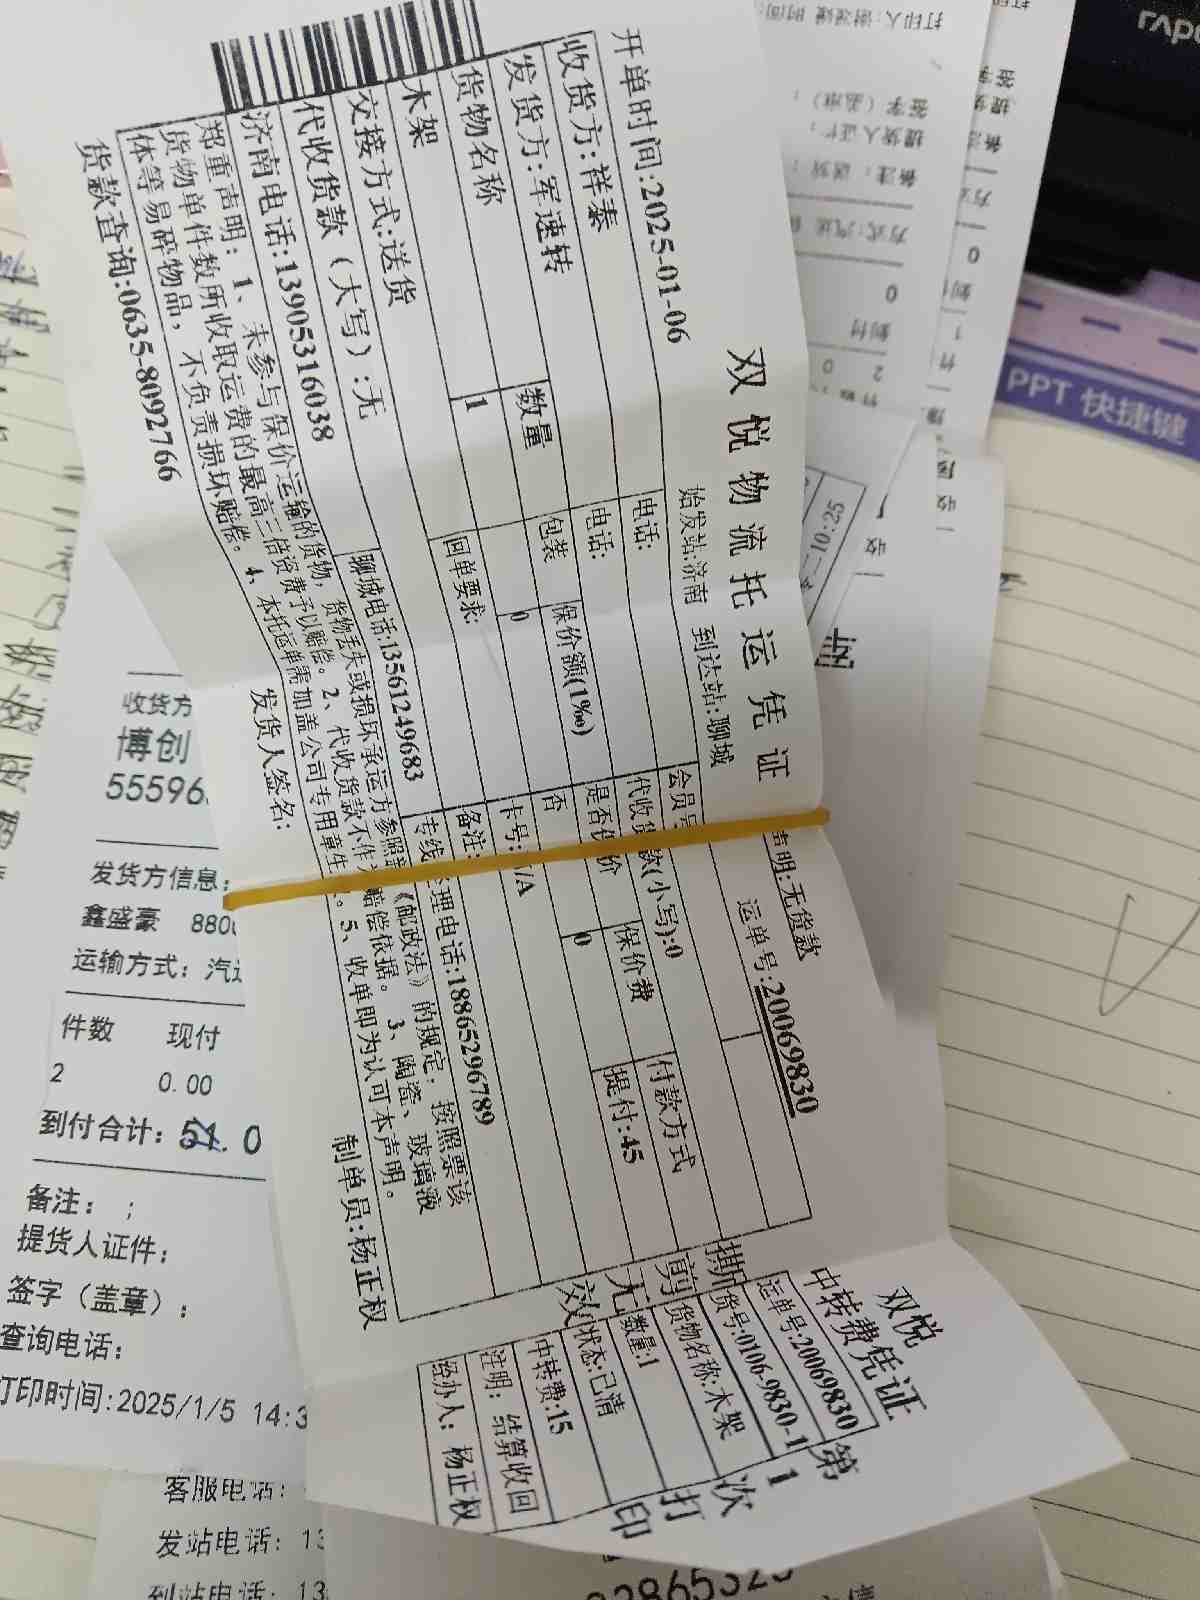 双悦物流托运凭证
声明:无货款
开单时间:2025-01-06
始发站:济南 到达站:聊城
运单号:20069830
收货方:祥泰
电话:
会员
发货方:军速转
电话:
代收货款(小写):0
付款方式
货物名称
数量
包装
保价额(1‰)
是否保价
保价费
提付:45
木架
1
0
否
0
交接方式:送货
回单要求:
卡号:N/A
代收货款（大写）:无
备注:
济南电话:13905316038
聊城电话:13561249683
专线经理电话:18865296789
郑重声明：1、未参与保价运输的货物，货物丢失或损坏承运方参照《邮政法》的规定；按照票该
货物单件数所收取运费的最高三倍资费予以赔偿。2、代收货款不作为赔偿依据。3、陶瓷、玻璃液
体等易碎物品，不负责损坏赔偿。4、本托运单需加盖公司专用章生 。5、收单即为认可本声明。
货款查询:0635-8092766
发货人签名:
制单员:杨正权
撕剪无效
双悦
中转费凭证
运单号:20069830
货号:0106-9830-1
货物名称:木架
数量:1
状态:已清
中转费:15
注明: 结算收回
经办人: 杨正权
第1次打印
收货方
博创
55596
发货方信息:
鑫盛豪 880
运输方式: 汽运
件数 现付
2 0.00
到付合计: 51.0
备注: ;
提货人证件:
签字（盖章）:
查询电话:
打印时间:2025/1/5 14:3
客服电话:
发站电话: 13
到站电话: 13
PPT 快捷键
10:25
提货人证件:
签字（盖章）:
备注: 送货
方式:汽运
0
到付
2
0